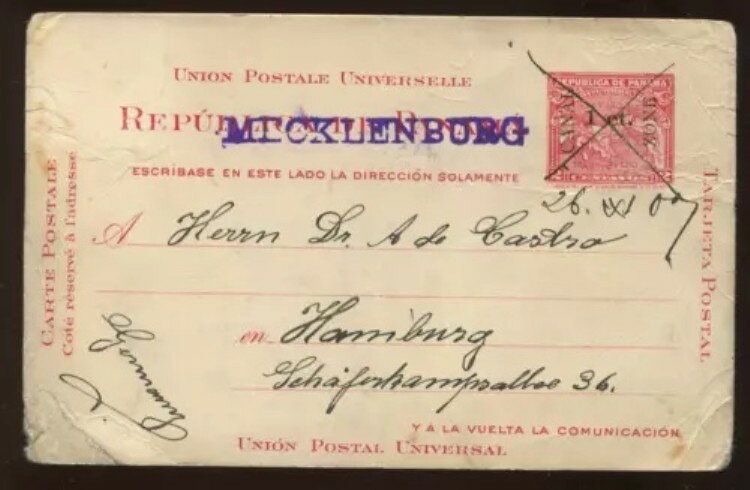 UNION POSTALE UNIVERSELLE
REPÚBLICA DE PANAMÁ
MECKLENBURG
REPUBLICA DE PANAMA
CANAL
1 ct.
ZONE
ESCRÍBASE EN ESTE LADO LA DIRECCIÓN SOLAMENTE
26. XI 07
A Herrn Dr. A de Castro
en Hamburg
Schäferkampsallee 36.
Germany
Y Á LA VUELTA LA COMUNICACIÓN
UNIÓN POSTAL UNIVERSAL
CARTE POSTALE
Côté réservé à l'adresse
TARJETA POSTAL